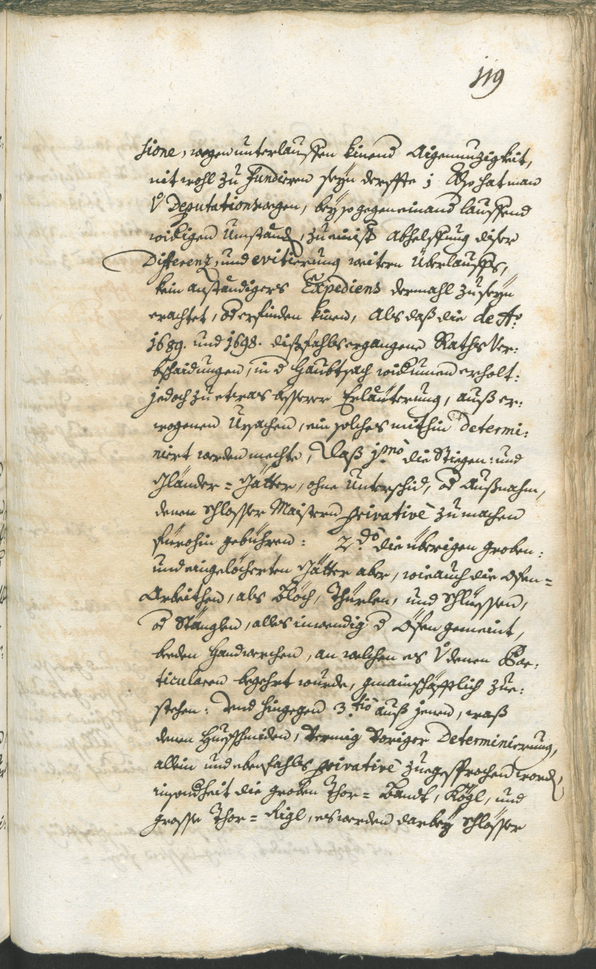 119
sione, wegen unterlauffen kinend Aigennuzigkeit,
nit wohl zu fundieren seyn derffte; Also hat man
V Deputations wegen, bey so gegeneinand lauffend
widrigen Umständ, zu Abhelffung diser
Differenz, und evitierung weitern Überlauffs,
kein anständigers Expediens dermahl zu seyn
erachtet, od erfinden kinen, Als daß die de Ao:
1689. und 1698. dißfahls ergangene Raths Ver:
bschaidungen, in d Haubtsach widerumen erholt:
jedoch zu etwas besserer Erläuterung, auß er:
wogenen Ursachen, ein solches mithin determi:
niert werden mechte, Daß 1mo die Stiegen: und
Gländer = Gätter, ohne Unterschid, od Außnahm,
denen Schlosser Maistern privativè zu machen
fürohin gebühren: 2do die übrigen groben:
und eingelöcherten Gätter aber, wie auch die Ofen=
Arbeithen, als Blöch, Thürlen, und Schliessen,
od Stänglen, alles inwendig d Öfen gemeint,
beeden Handwerchen, an welchen es V denen Par:
ticularen begehrt wurde, gmainschäfftlich zue:
stehen: Und hingegen 3tiò auß jenen, waß
denen Huefschmiden, Vermög Voriger Determinierung,
allein und ebenfahls privativè zuegesprochen worden
die groben Thor= Bandt, Kögl, und
grosse Thor= Rigl, es werden darbey Schlösser